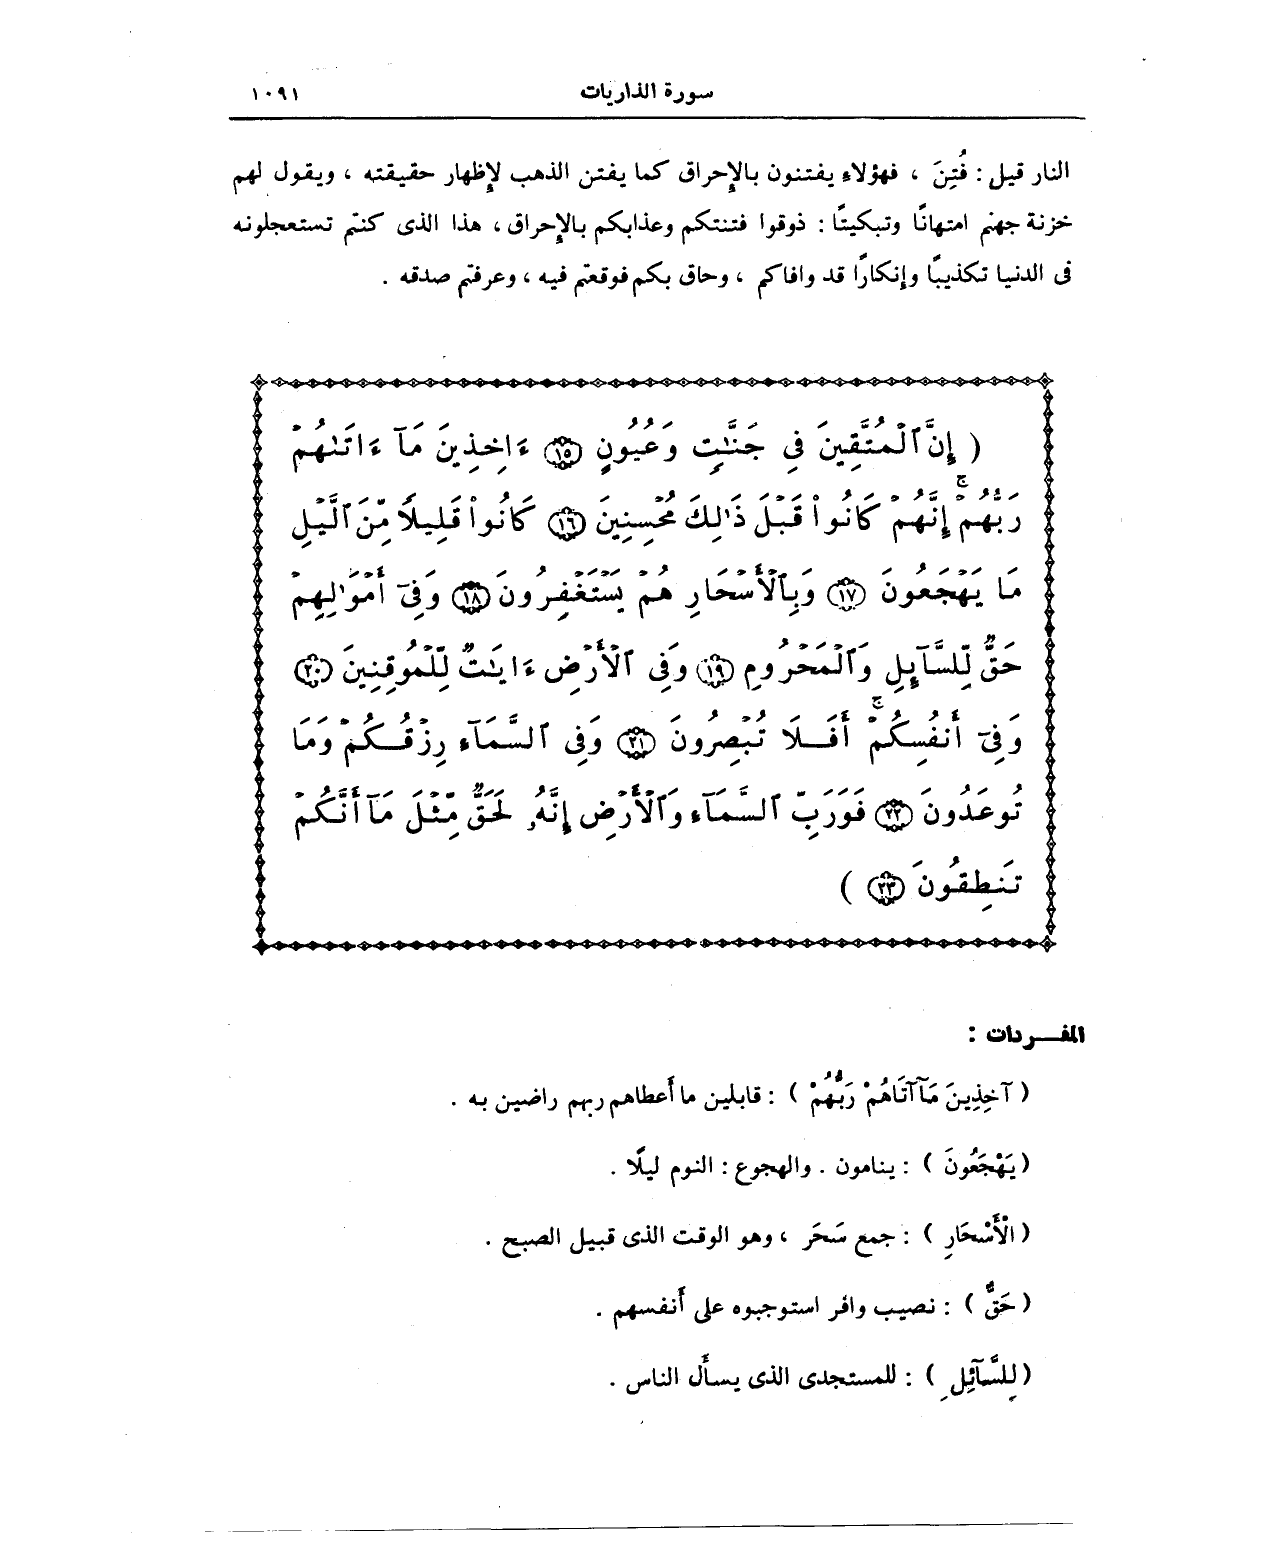 سورة الذاريات ١٠٩١
النار قيل : فُتِنَ ، فهؤلاء يفتنون بالإحراق كما يفتن الذهب لإظهار حقيقته ، ويقول لهم
خزنة جهنم امتهانًا وتبكيتًا : ذوقوا فتنتكم وعذابكم بالإحراق ، هذا الذى كنتم تستعجلونه
فى الدنيا تكذيبًا وإنكارًا قد وافاكم ، وحاق بكم فوقعتم فيه ، وعرفتم صدقه .
( إِنَّ ٱلْمُتَّقِينَ فِى جَنَّـٰتٍ وَعُيُونٍ ۝١٥ ءَاخِذِينَ مَآ ءَاتَىٰهُمْ
رَبُّهُمْ ۚ إِنَّهُمْ كَانُوا۟ قَبْلَ ذَٰلِكَ مُحْسِنِينَ ۝١٦ كَانُوا۟ قَلِيلًا مِّنَ ٱلَّيْلِ
مَا يَهْجَعُونَ ۝١٧ وَبِٱلْأَسْحَارِ هُمْ يَسْتَغْفِرُونَ ۝١٨ وَفِىٓ أَمْوَٰلِهِمْ
حَقٌّ لِّلسَّآئِلِ وَٱلْمَحْرُومِ ۝١٩ وَفِى ٱلْأَرْضِ ءَايَـٰتٌ لِّلْمُوقِنِينَ ۝٢٠
وَفِىٓ أَنفُسِكُمْ ۚ أَفَلَا تُبْصِرُونَ ۝٢١ وَفِى ٱلسَّمَآءِ رِزْقُكُمْ وَمَا
تُوعَدُونَ ۝٢٢ فَوَرَبِّ ٱلسَّمَآءِ وَٱلْأَرْضِ إِنَّهُۥ لَحَقٌّ مِّثْلَ مَآ أَنَّكُمْ
تَنطِقُونَ ۝٢٣ )
المفـردات :
( آخِذِينَ مَآ آتَاهُمْ رَبُّهُمْ ) : قابلين ما أعطاهم ربهم راضين به .
( يَهْجَعُونَ ) : ينامون . والهجوع : النوم ليلًا .
( الْأَسْحَارِ ) : جمع سَحَر ، وهو الوقت الذى قبيل الصبح .
( حَقٌّ ) : نصيب وافر استوجبوه على أنفسهم .
( لِلسَّآئِلِ ) : للمستجدى الذى يسأل الناس .